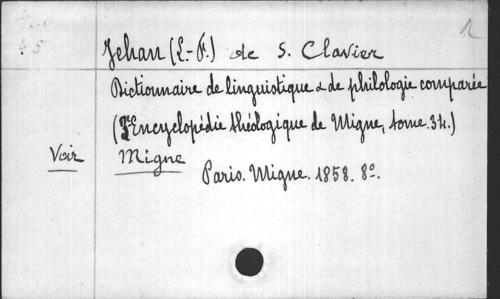 Jehan (L.-F.) de S. Clavier
Dictionnaire de linguistique & de philologie comparée
(Encyclopédie théologique de Migne, tome 34.)
Voir Migne
Paris. Migne. 1858. 8º.